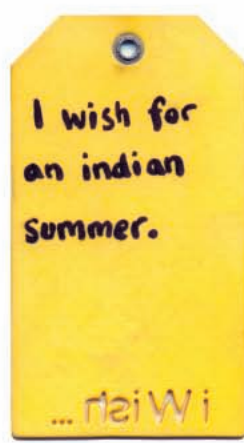 I wish for
an indian
summer.
i Wish ...